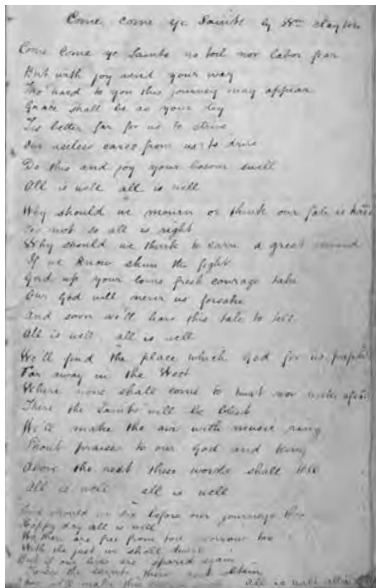 Come come ye Saints by Wm Clayton
Come Come ye Saints no toil nor labor fear
But with joy wend your way
Tho hard to you this journey may appear
Grace shall be as your day
Tis better far for us to strive
Our useless cares from us to drive
Do this and joy your bosoms swell
All is well all is well
Why should we mourn or think our lot is hard
Tis not so all is right
Why should we think to earn a great reward
If we know shun the fight
Gird up your loins fresh courage take
Our God will never us forsake
And soon we'll have this tale to tell
All is well all is well
We'll find the place which God for us prepared
Far away in the West
Where none shall come to hurt nor make afraid
There the Saints will be blest
We'll make the air with music ring
Shout praises to our God and King
Above the rest these words shall tell
All is well all is well
And should we die before our journeys thro
Happy day all is well
We then are free from toil sorrow too
With the just we shall dwell
But if our lives are spared again
To see the saints there rest obtain
we'll make this All is well